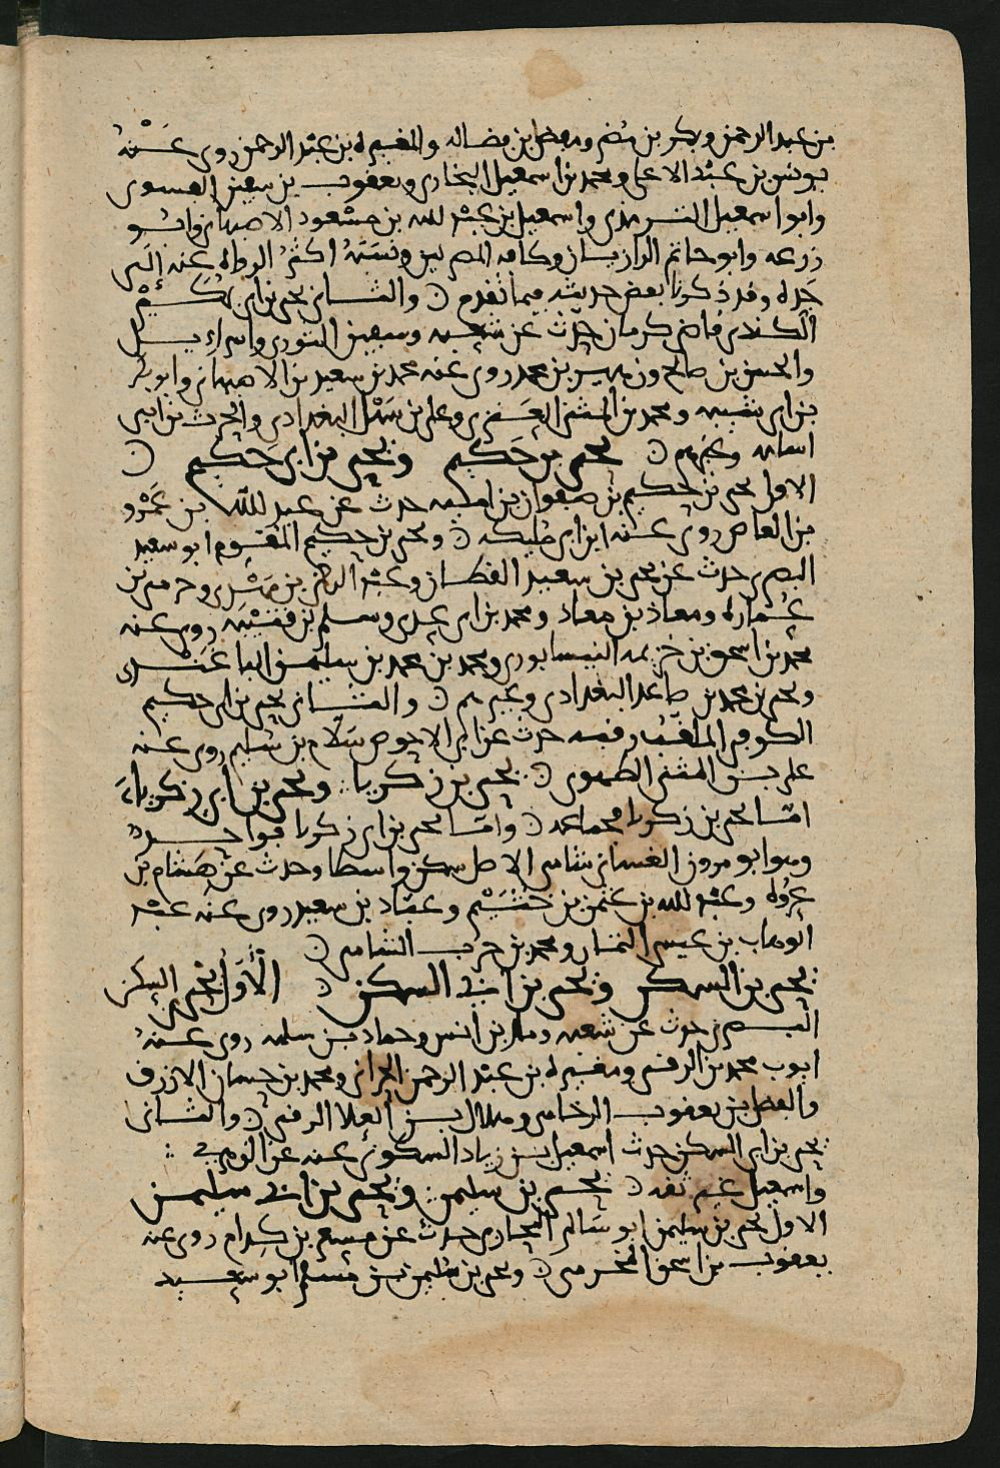 بن عبد الرحمن وبكر بن مضر ومفضل بن فضاله والمغيره بن عبد الرحمن روى عَنْهُ
يونس بن عبد الاعلى ومحمد بن اسمعيل البخاري ويعقوب بن سفين الفسوى
وابو اسمعيل الترمذي واسمعيل بن عبد لله بن مسعود الاصبهاني وابو
زرعه وابو حاتم الرازيان وكافه المصريين ونَسَبَهُ اكثرُ الرواه عنه إلَى
جَده وقد ذكرنا بعض حديثه فيما تقدم ن والثـاني يحيى بن ابي بُكَيْر
الكندي قاضي كرمان حدّث عن شعبه وسفين الثوري واسراءيل
والحسن بن صالح وزهير بن محمد روى عنه محمد بن سعيد بن الاصبهاني وابو بكر
بن ابي شيبه ومحمد بن المثنى العَنَزي وعلي بن سَهْل البغدادي والحرث بن ابي
اسامه وغيرهم ن يحيى بن حَكيم ويحيى بن ابي حَكيم ن
الاول يحيى بن حكيم بن صفوان بن اميه حدث عن عبد لله بن عَمْرو
بن العاص روى عنه ابن ابي مُليكه ن ويحيى بن حكيم المقوم ابو سعيد
البصري حدث عن يحيى بن سعيد القطان وعبد الرحمن بن مَهْدي وحرمي بن
عُماره ومعاذ بن معاذ ومحمد بن ابي عدي وسلم بن قتيبه روى عنه
محمد بن اسحق بن خزيمه النيسابوري ومحمد بن محمد بن سليمن الباغَنْدي
ويحيى بن محمد بن صاعد البغدادي وغيرهم ن والثـاني يحيى بن ابي حكيم
الكوفي الملقب رقبه حدث عن ابي الاحوص سَلّام بن سُليم روى عنه
علي بن المثنى الطهوي ن يحيى بن زكريا ويحيى بن أبي زكرياءَ
امّا يحيى بن زكريا فجماعه ن وامّا يحيى بن ابي زكريا فواحدٌ
وهو ابو مروان الغساني شامي الاصل سكن واسطا وحدث عن هشام بن
عروه وعبد لله بن عثمن بن خُثَيْم وعبّاد بن سعيد روى عنه عبد
الوهاب بن عيسى التمّار ومحمد بن حرب النشامي ن
يحيى بن السكن ويحيى بن ابي السكن ن الأوّل يحيى بن السكن
البصري حدث عن شعبه وملك بن انس وحماد بن سلمه روى عنهُ
ايوب بن محمد الرقي ومغيره بن عبد الرحمن الحراني ومحمد بن حسان الازرق
والفضل بن يعقوب الرخامي وهلال بن العلا الرقي ن والثـاني
يحيى بن ابي السكن حدث اسمعيل بن زياد السكوني عنه عن الزهري
واسمعيل غير ثقه ن يحيى بن سليمن ويحيى بن ابي سليمن
الاول يحيى بن سليمن ابو سَالم النجاري حدث عن مسعر بن كدام روى عنه
يعقوب بن اسحق المخرمي ن ويحيى بن سليمن بن مسلم ابو سعيد